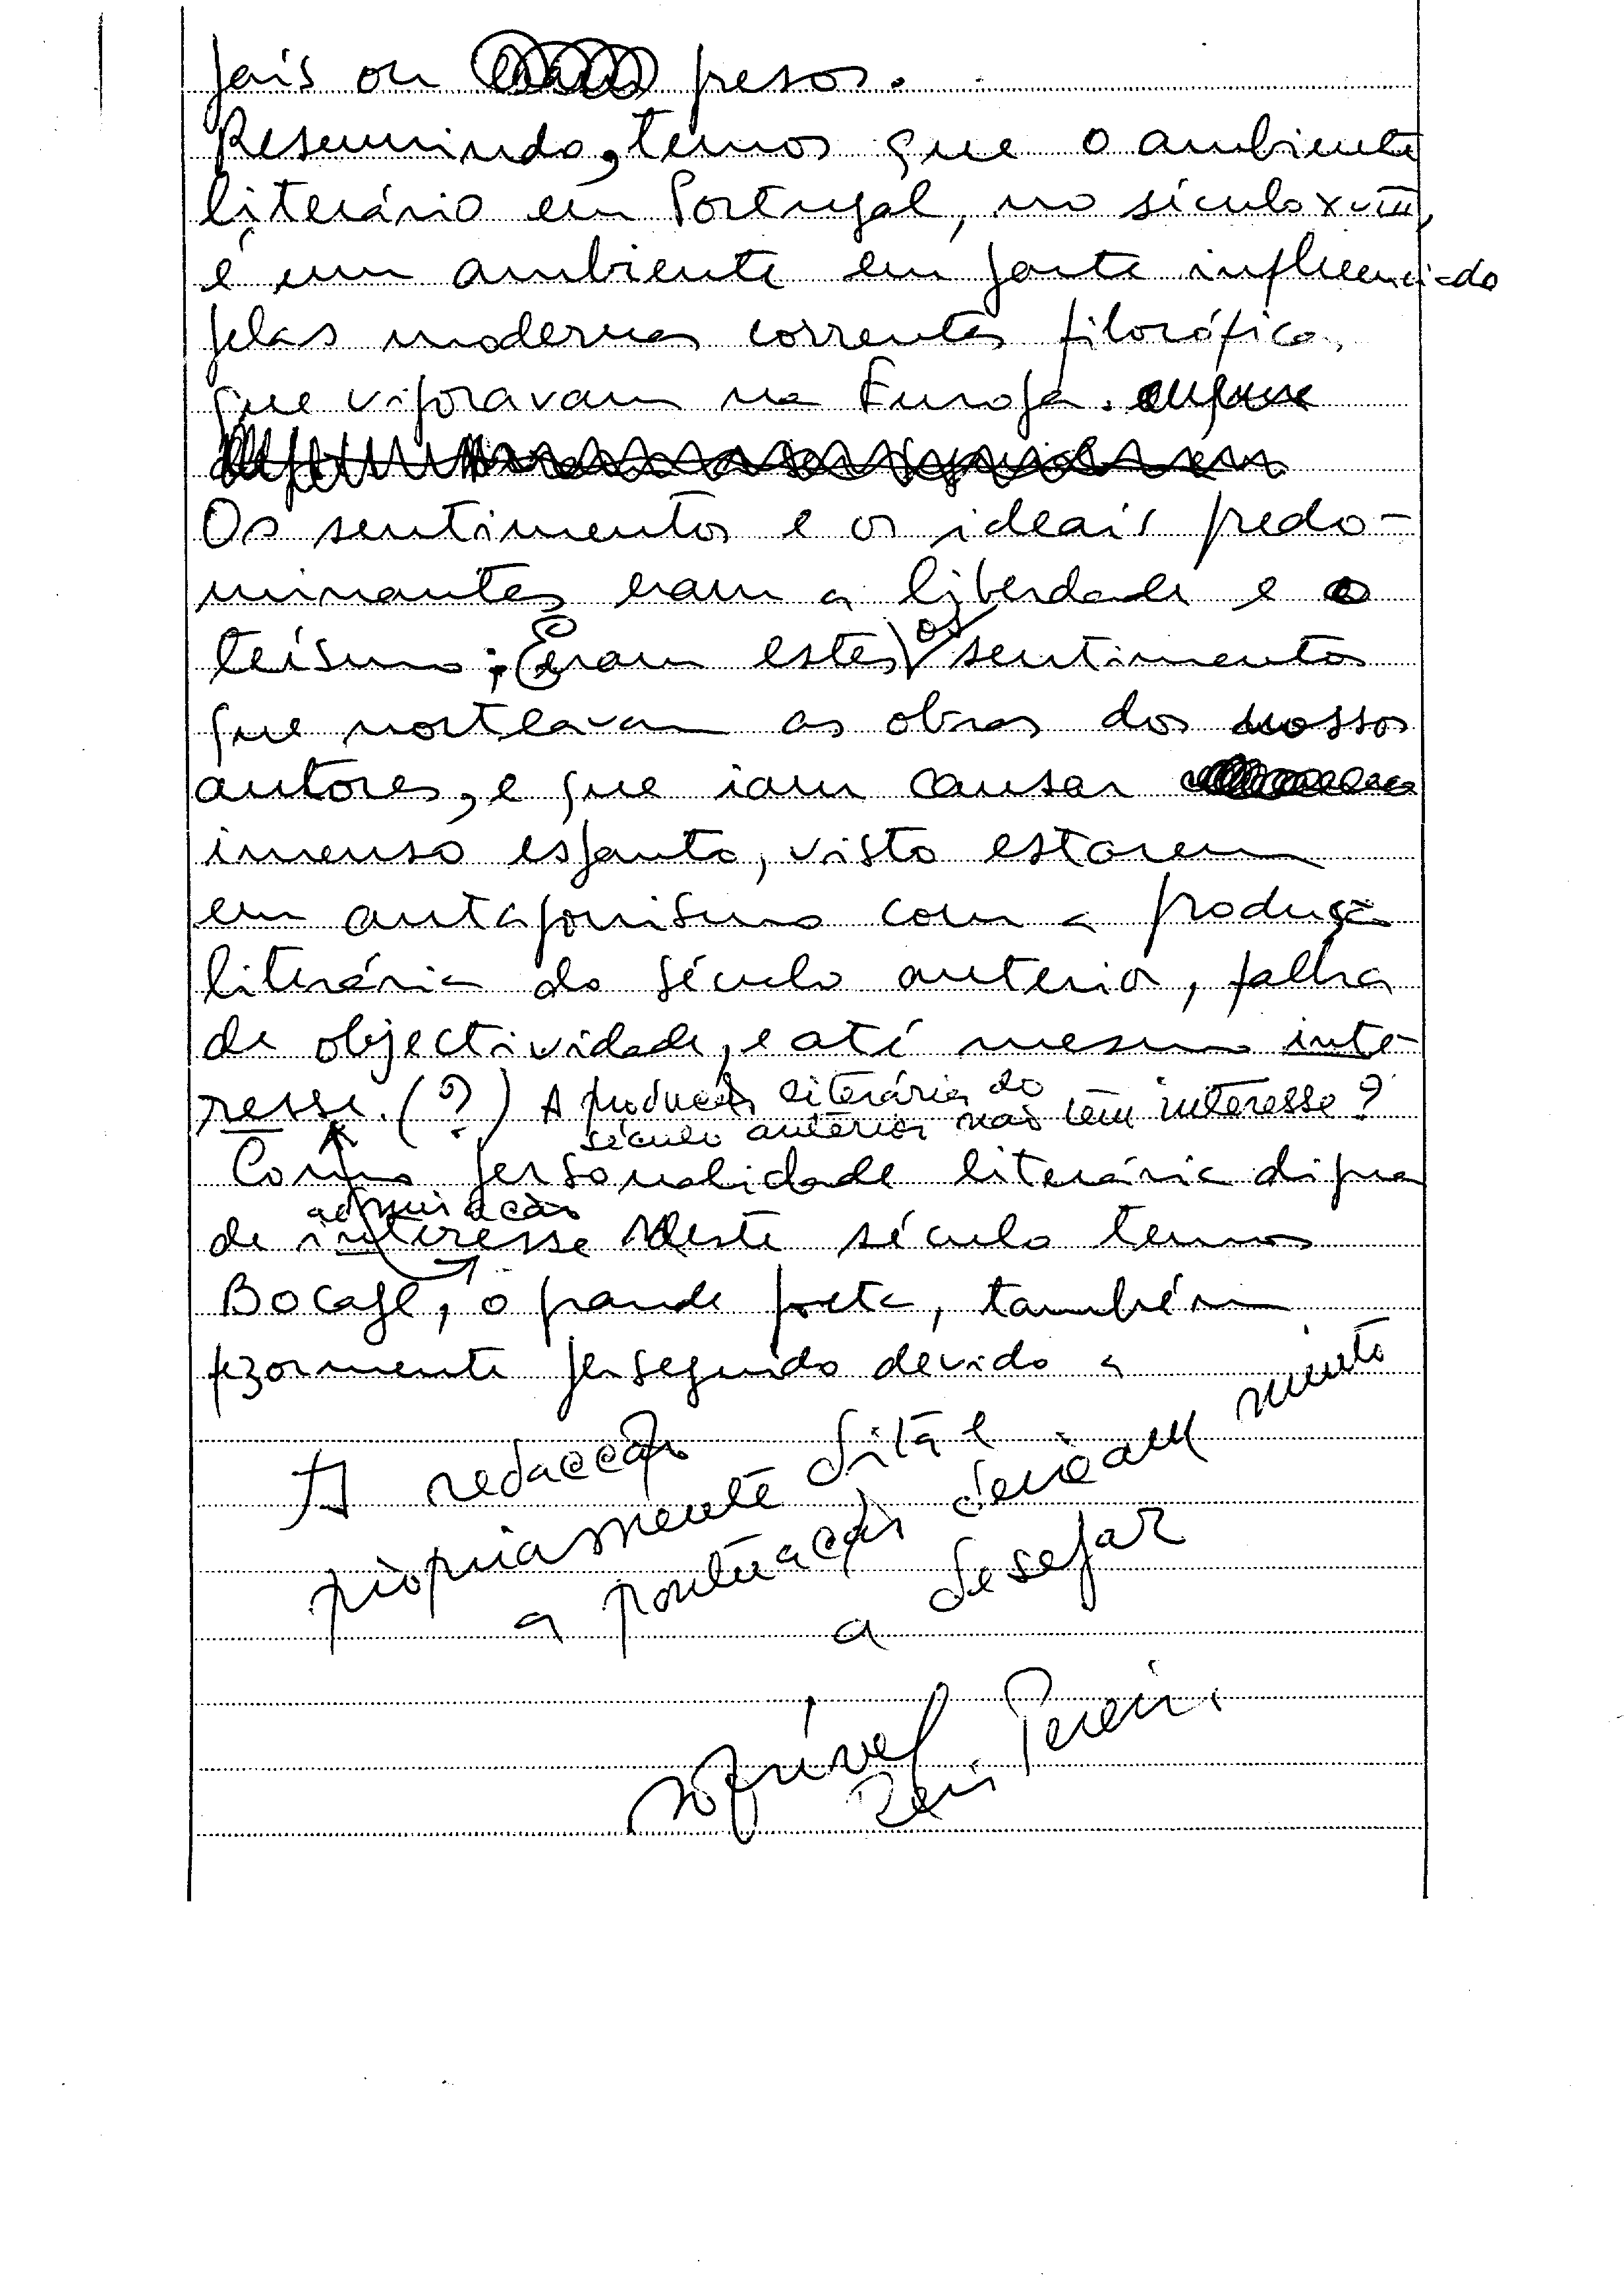 pais ou presos.
Resumindo, temos que o ambiente
literário em Portugal, no século XVIII,
é um ambiente em parte influenciado
pelas modernas correntes filosóficas
que vigoravam na Europa.
Os sentimentos e os ideais predo-
minantes eram a liberdade e o
teísmo; Eram estes os sentimentos
que norteavam as obras dos nossos
autores, e que iam causar
imenso espanto, visto estarem
em antagonismo com a produção
literária do século anterior, falha
de objectividade, e até mesmo inte-
resse. (?) A produção literária do
século anterior não tem interesse?
Como personalidade literária digna
admiração
de interesse deste século temos
Bocage, o grande poeta, também
pezormente perseguido devido a
A redacção
propriamente dita e
a pontuação deixam muito
a desejar
sofrível
Pereira